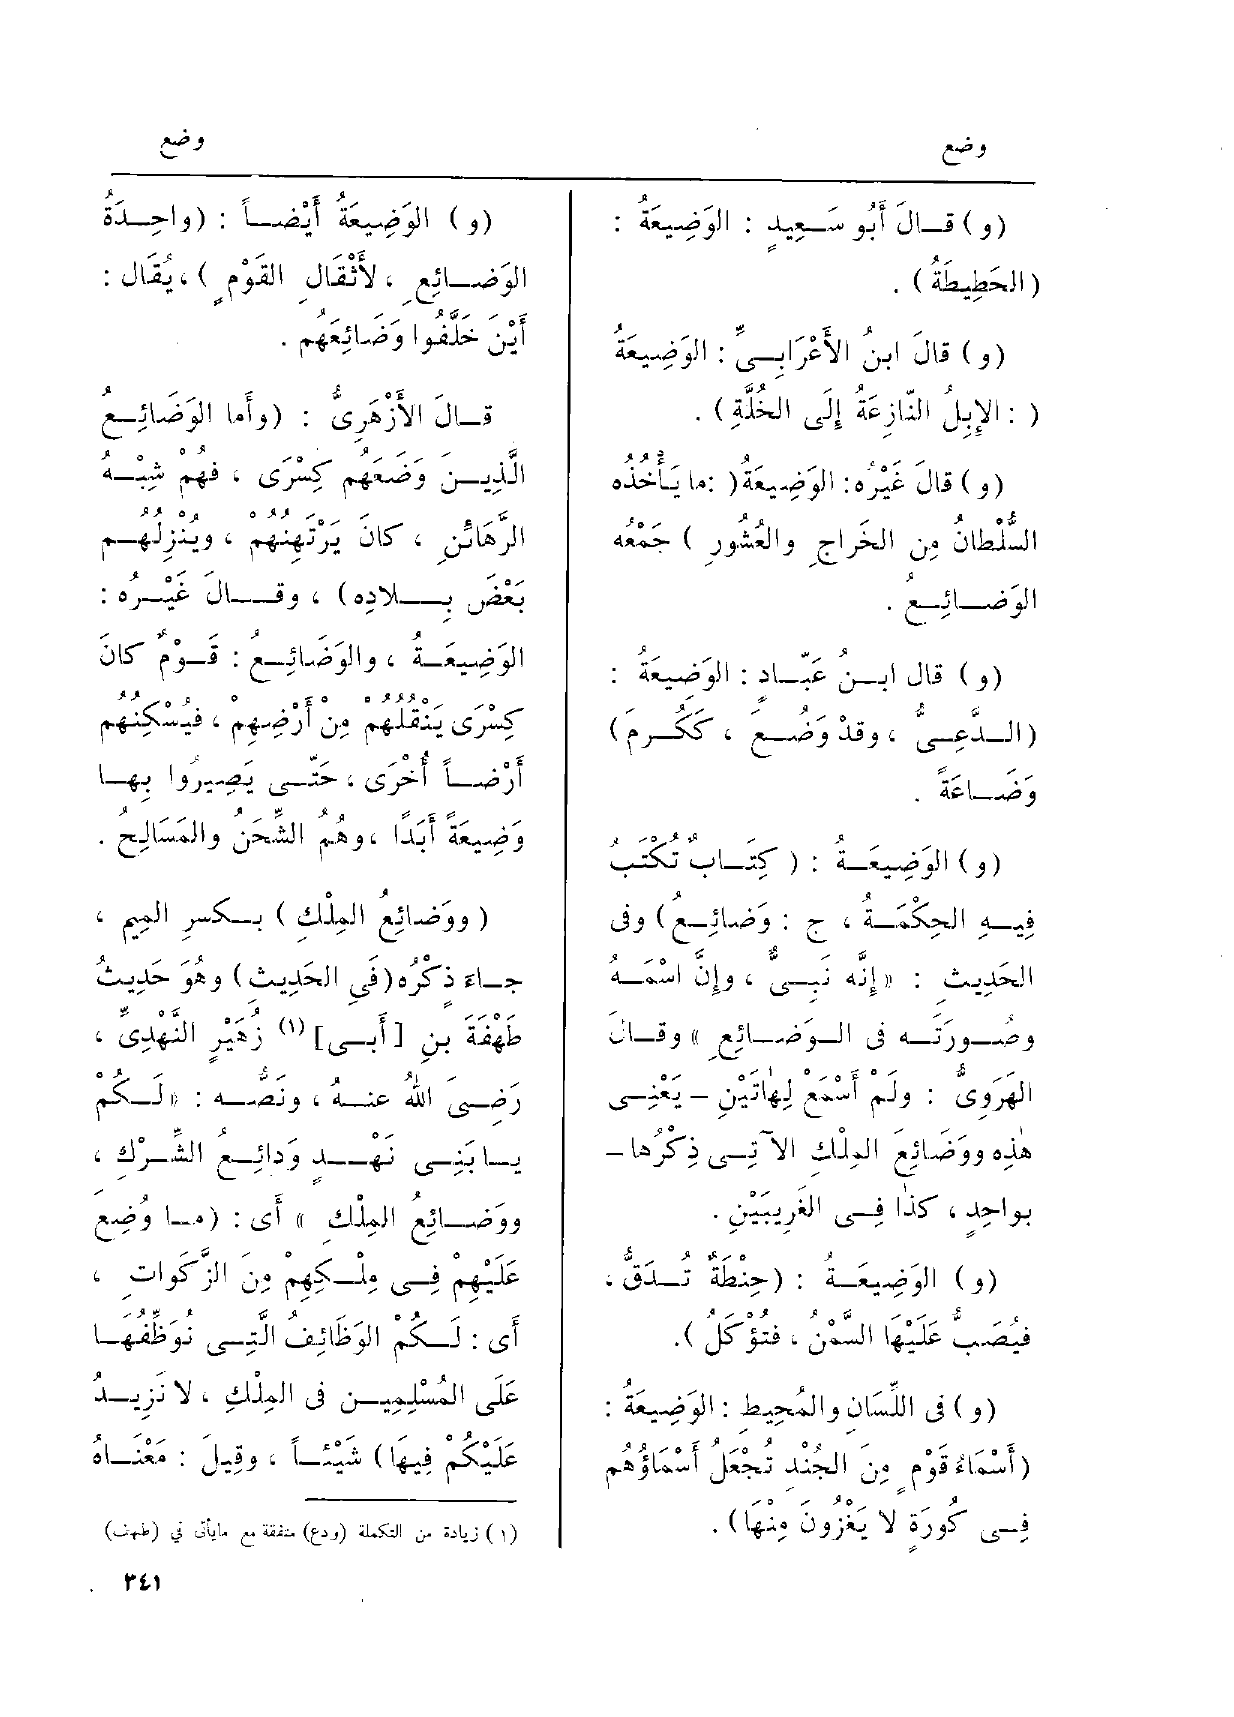 وضع
وضع
(و) قـال أَبُو سَـعِيدٍ : الوَضِيعَةُ :
(الحَطِيطَةُ) .
(و) قالَ ابنُ الأَعْرَابِـىِّ : الوَضِيعَةُ
( : الإِبِلُ النّازِعَةُ إِلَى الخُلَّةِ) .
(و) قالَ غَيْرُه: الوَضِيعَةُ( :ما يَأْخُذُه
السُّلْطانُ مِن الخَراجِ والعُشُورِ ) جَمْعُه
الوَضـائِـعُ .
(و) قال ابـنُ عَبّـادٍ : الوَضِيعَةُ :
(الـدَّعِـىُّ ، وقدْ وَضُـعَ ، كَكَـرمَ)
وَضَـاعَةً .
(و) الوَضِيعَـةُ : ( كِتَـابٌ تُكْتَبُ
فِيـهِ الحِكْمَـةُ ، ج : وَضائِـعُ) وفى
الحَدِيثِ : «إِنَّه نَبِـىٌّ ، وإِنَّ اسْمَـهُ
وصُـورَتَـه فى الـوَضـائِعِ » وقـالَ
الهَرَوِىُّ : ولَم أَسْمَعْ لِهٰاتَيْنِ - يَعْنِـى
هٰذِه ووَضَائِعَ المِلْكِ الآتِـى ذِكْرُها -
بواحِدٍ ، كذا فِـى الغَرِيبَيْنِ .
(و) الوَضِيعَـةُ : (حِنْطَةٌ تُـدَقُّ ،
فيُصَبُّ عَلَيْهَا السَّمْنُ ، فتُؤْكَلُ ).
(و) فى اللِّسَان والمُحِيطِ : الوَضِيعَةُ :
(أَسْمَاءُ قَوْمٍ مِنَ الجُنْدِ تُجْعَلُ أَسْماؤُهُم
فِـى كُورَةٍ لا يَغْزُونَ مِنْهَا) .
(و) الوَضِيعَةُ أَيْضـاً : (واحِـدَةُ
الوَضـائِعِ ، لأَثْقَالِ القَوْمِ ) ، يُقَال :
أَيْنَ خَلَّفُوا وَضَائِعَهُم .
قـالَ الأَزْهَرِىُّ : (وأَما الوَضَائِـعُ
الَّذِيـنَ وَضَعَهُم كِسْرَى ، فهُم شِبْـهُ
الرَّهَائنِ ، كانَ يَرْتَهِنُهُم ، ويُنْزِلُهُـم
بَعْضَ بِـلادِه) ، وقـالَ غَيْـرُه :
الوَضِيعَـةُ ، والوَضَائِـعُ : قَـوْمٌ كانَ
كِسْرَى يَنْقُلُهُمْ مِنْ أَرْضِهِمْ ، فيُسْكِنُهم
أَرْضـاً أُخْرَى ، حَتّـى يَصِيرُوا بِهـا
وَضِيعَةً أَبَدًا ، وهُمُ الشِّحَنُ والمَسَالِحُ .
( ووَضائِعُ المِلْكِ ) بـكسرِ الميمِ ،
جـاءَ ذِكْرُه(فى الحَدِيث) وهُوَ حَدِيثُ
طَهْفَةَ بنِ [أَبـى] (١) زُهَيْرٍ النَّهْدِىِّ ،
رَضِـىَ اللهُ عنـهُ ، ونَصُّـه : «لَـكُمْ
يـا بَنِـى نَهْـدٍ وَدائِـعُ الشِّـرْكِ ،
ووَضـائِعُ المِلْكِ » أَى : (مـا وُضِعَ
عَلَيْهِمْ فِـى مِلْـكِهِمْ مِنَ الزَّكَواتِ ،
أَى : لَـكُمْ الوَظَائِفُ الَّتِـى نُوَظِّفُهَـا
عَلَى المُسْلِمِيـن فى المِلْكِ ، لا نَزِيـدُ
عَلَيْكُمْ فِيهَا) شَيْئـاً ، وقِيلَ : مَعْنَـاهُ
(١) زيادة من التكملة (ودع) متفقة مع مايأتى فى (طهف)
٣٤١